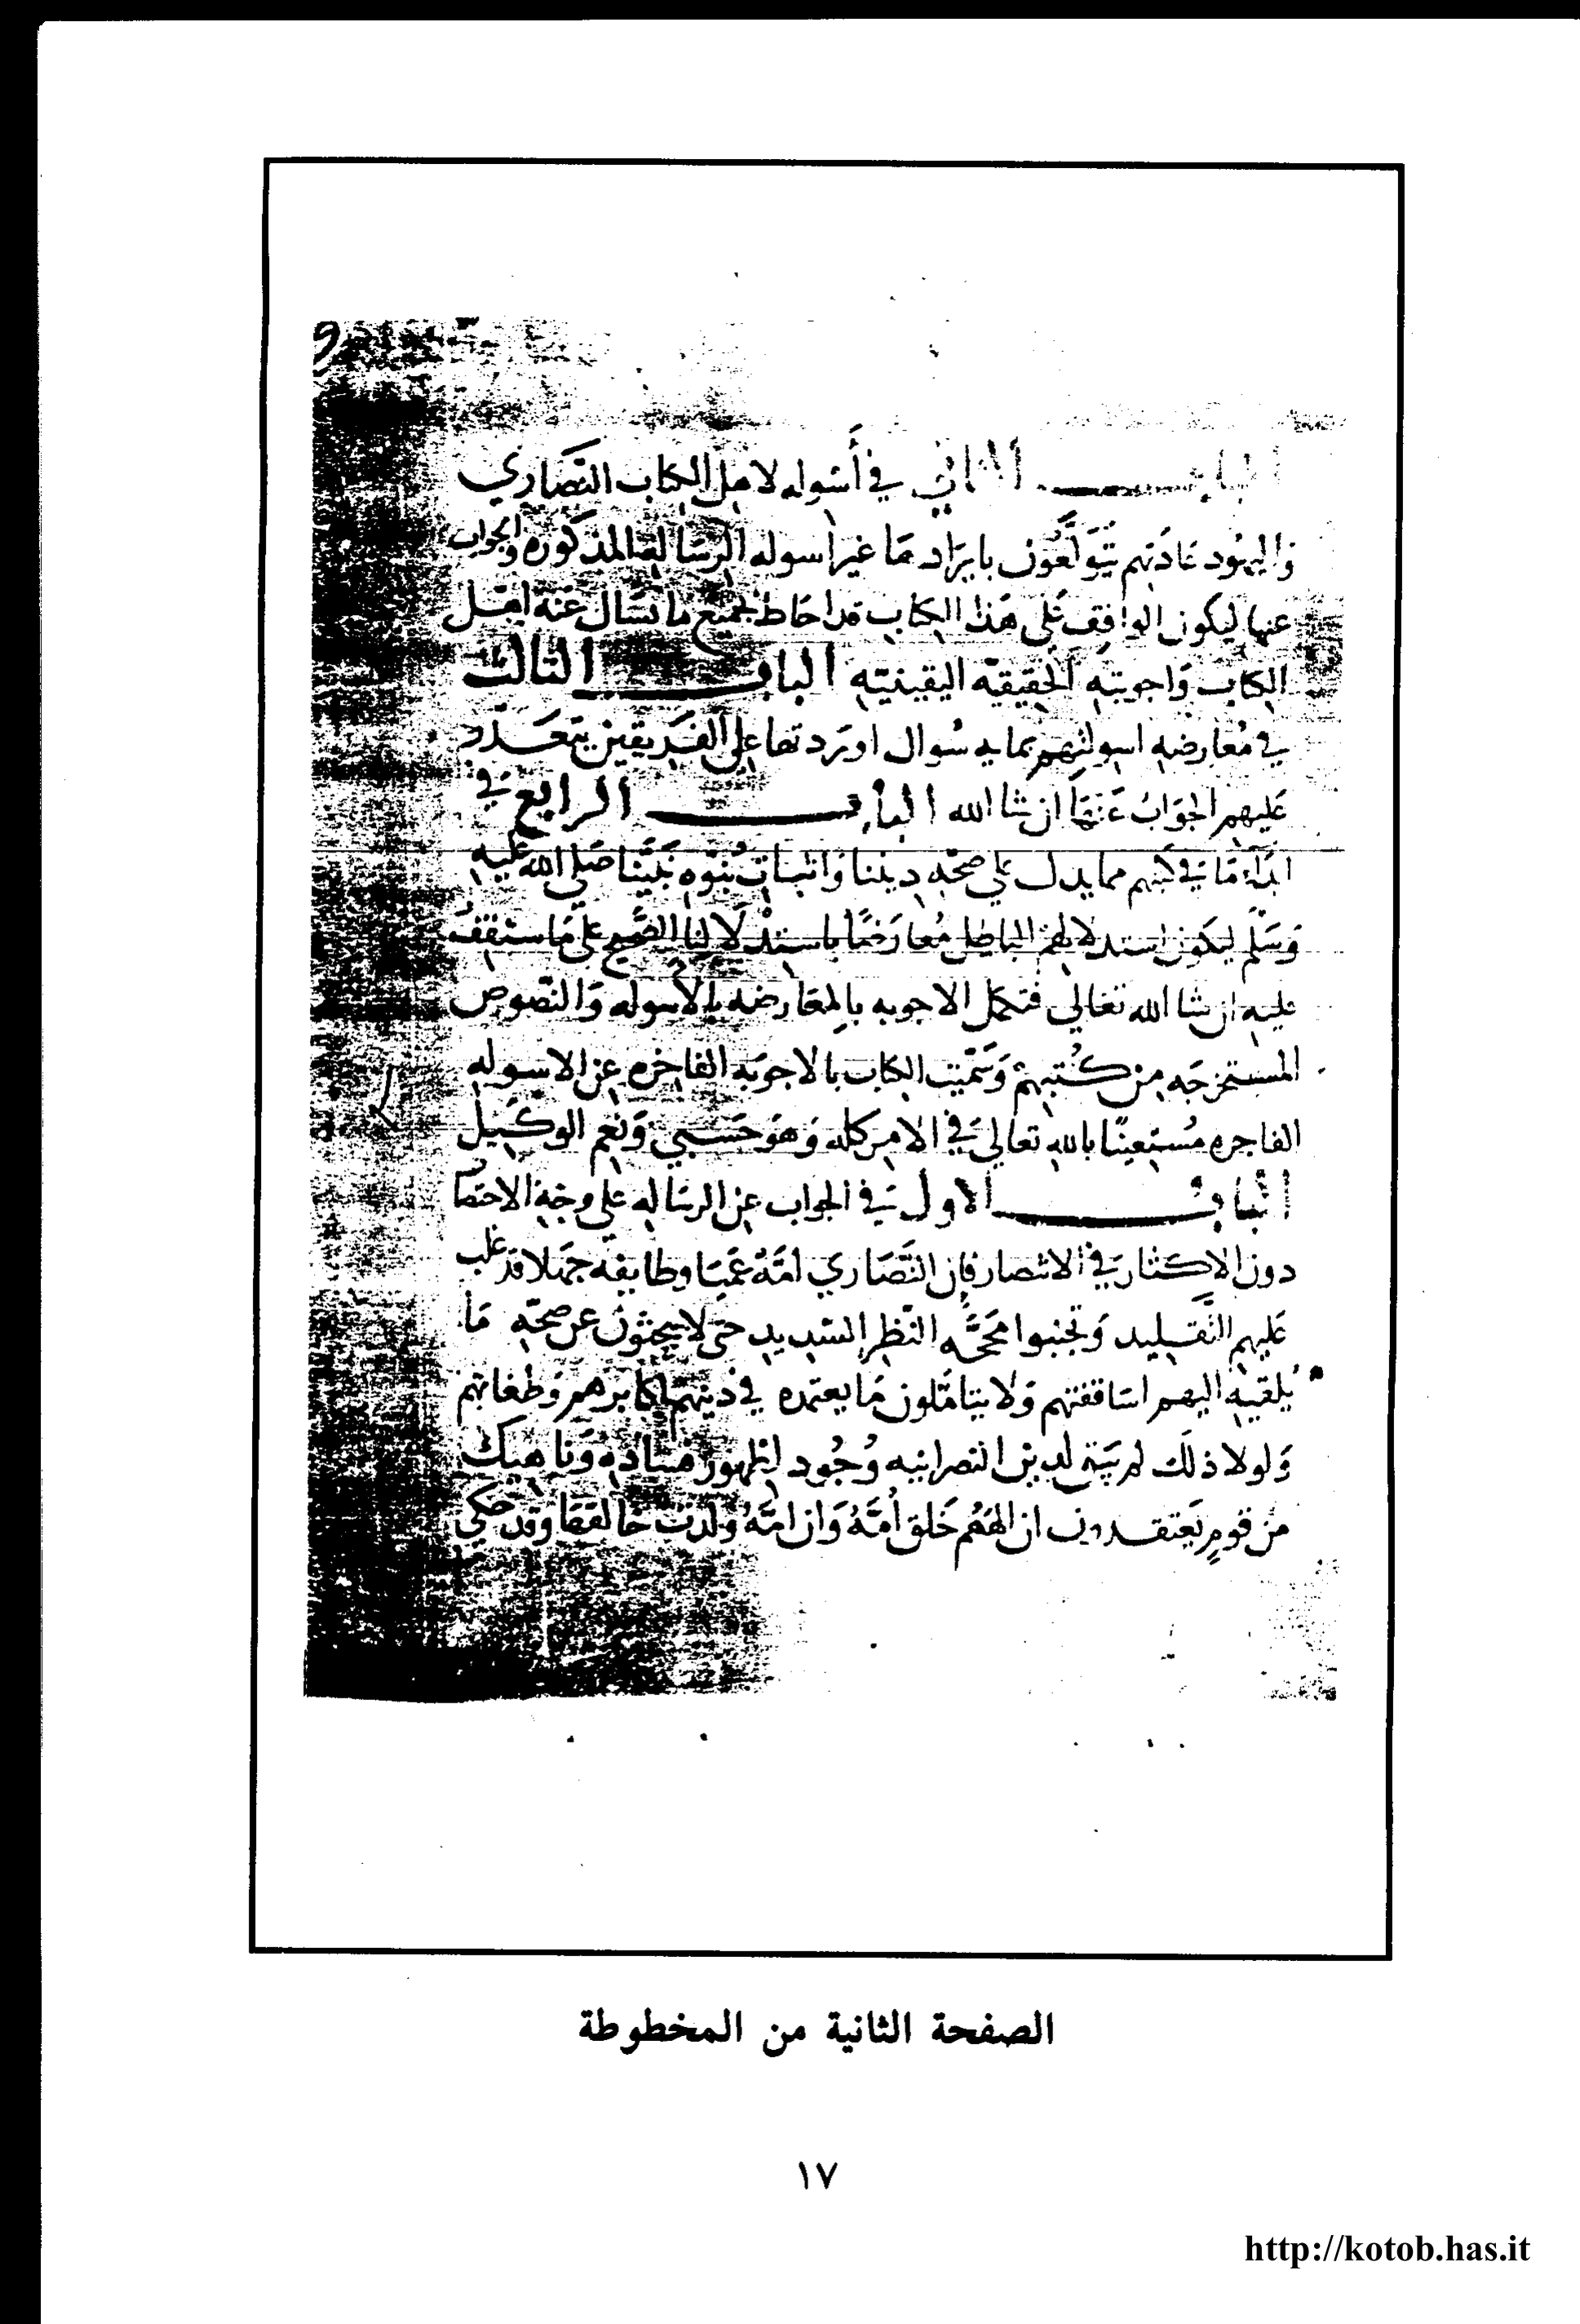 الباب الثاني في أسوله لاهل الكتاب النصاري
واليهود عادتهم يتولعون بايراد ها غير اسوله الرسالة المذكوره والجواب
عنها ليكون الواقف على هذا الكتاب قد احاط بجميع ما تسال عنه اهل
الكتاب واجوبته الحقيقيه اليقينيه الباب الثالث
في معارضه اسولتهم بمايه سوال اوردتها على الفريقين يتعذر
عليهم الجواب عنها ان شا الله الباب الرابع في
ابداء ما في كتبهم مما يدل على صحه ديننا واثبات نبوه نبينا صلى الله عليه
وسلم ليكون استدلالهم الباطل معارضا باستدلالنا الصحيح على ما ستقف
عليه ان شا الله تعالي فتكمل الاجوبه بالمعارضه بالاسوله والنصوص
المستخرجه من كتبهم وسميت الكتاب بالاجوبه الفاخره عن الاسوله
الفاجره مستعينا بالله تعالي في الامر كله وهو حسبي ونعم الوكيل
الباب الاول في الجواب عن الرساله علي وجه الاختصا
دون الاكثار في الانتصار فان النصاري امة عميا وطايفه جهلا قد غلب
عليهم التقليد وتجنبوا محجه النظر السديد حتى لا يبحثون عن صحه ما
يلقيه اليهم اساقفتهم ولا يتاملون ما يعتمده في دينهم اكابرهم وطغاتهم
ولولا ذلك لم يبق لدين النصرانيه وجود لظهور فساده وناهيك
من قوم يعتقدون ان الههم خلق أمه وان امه ولدت خالقها وقد حكي
الصفحة الثانية من المخطوطة
١٧
http://kotob.has.it